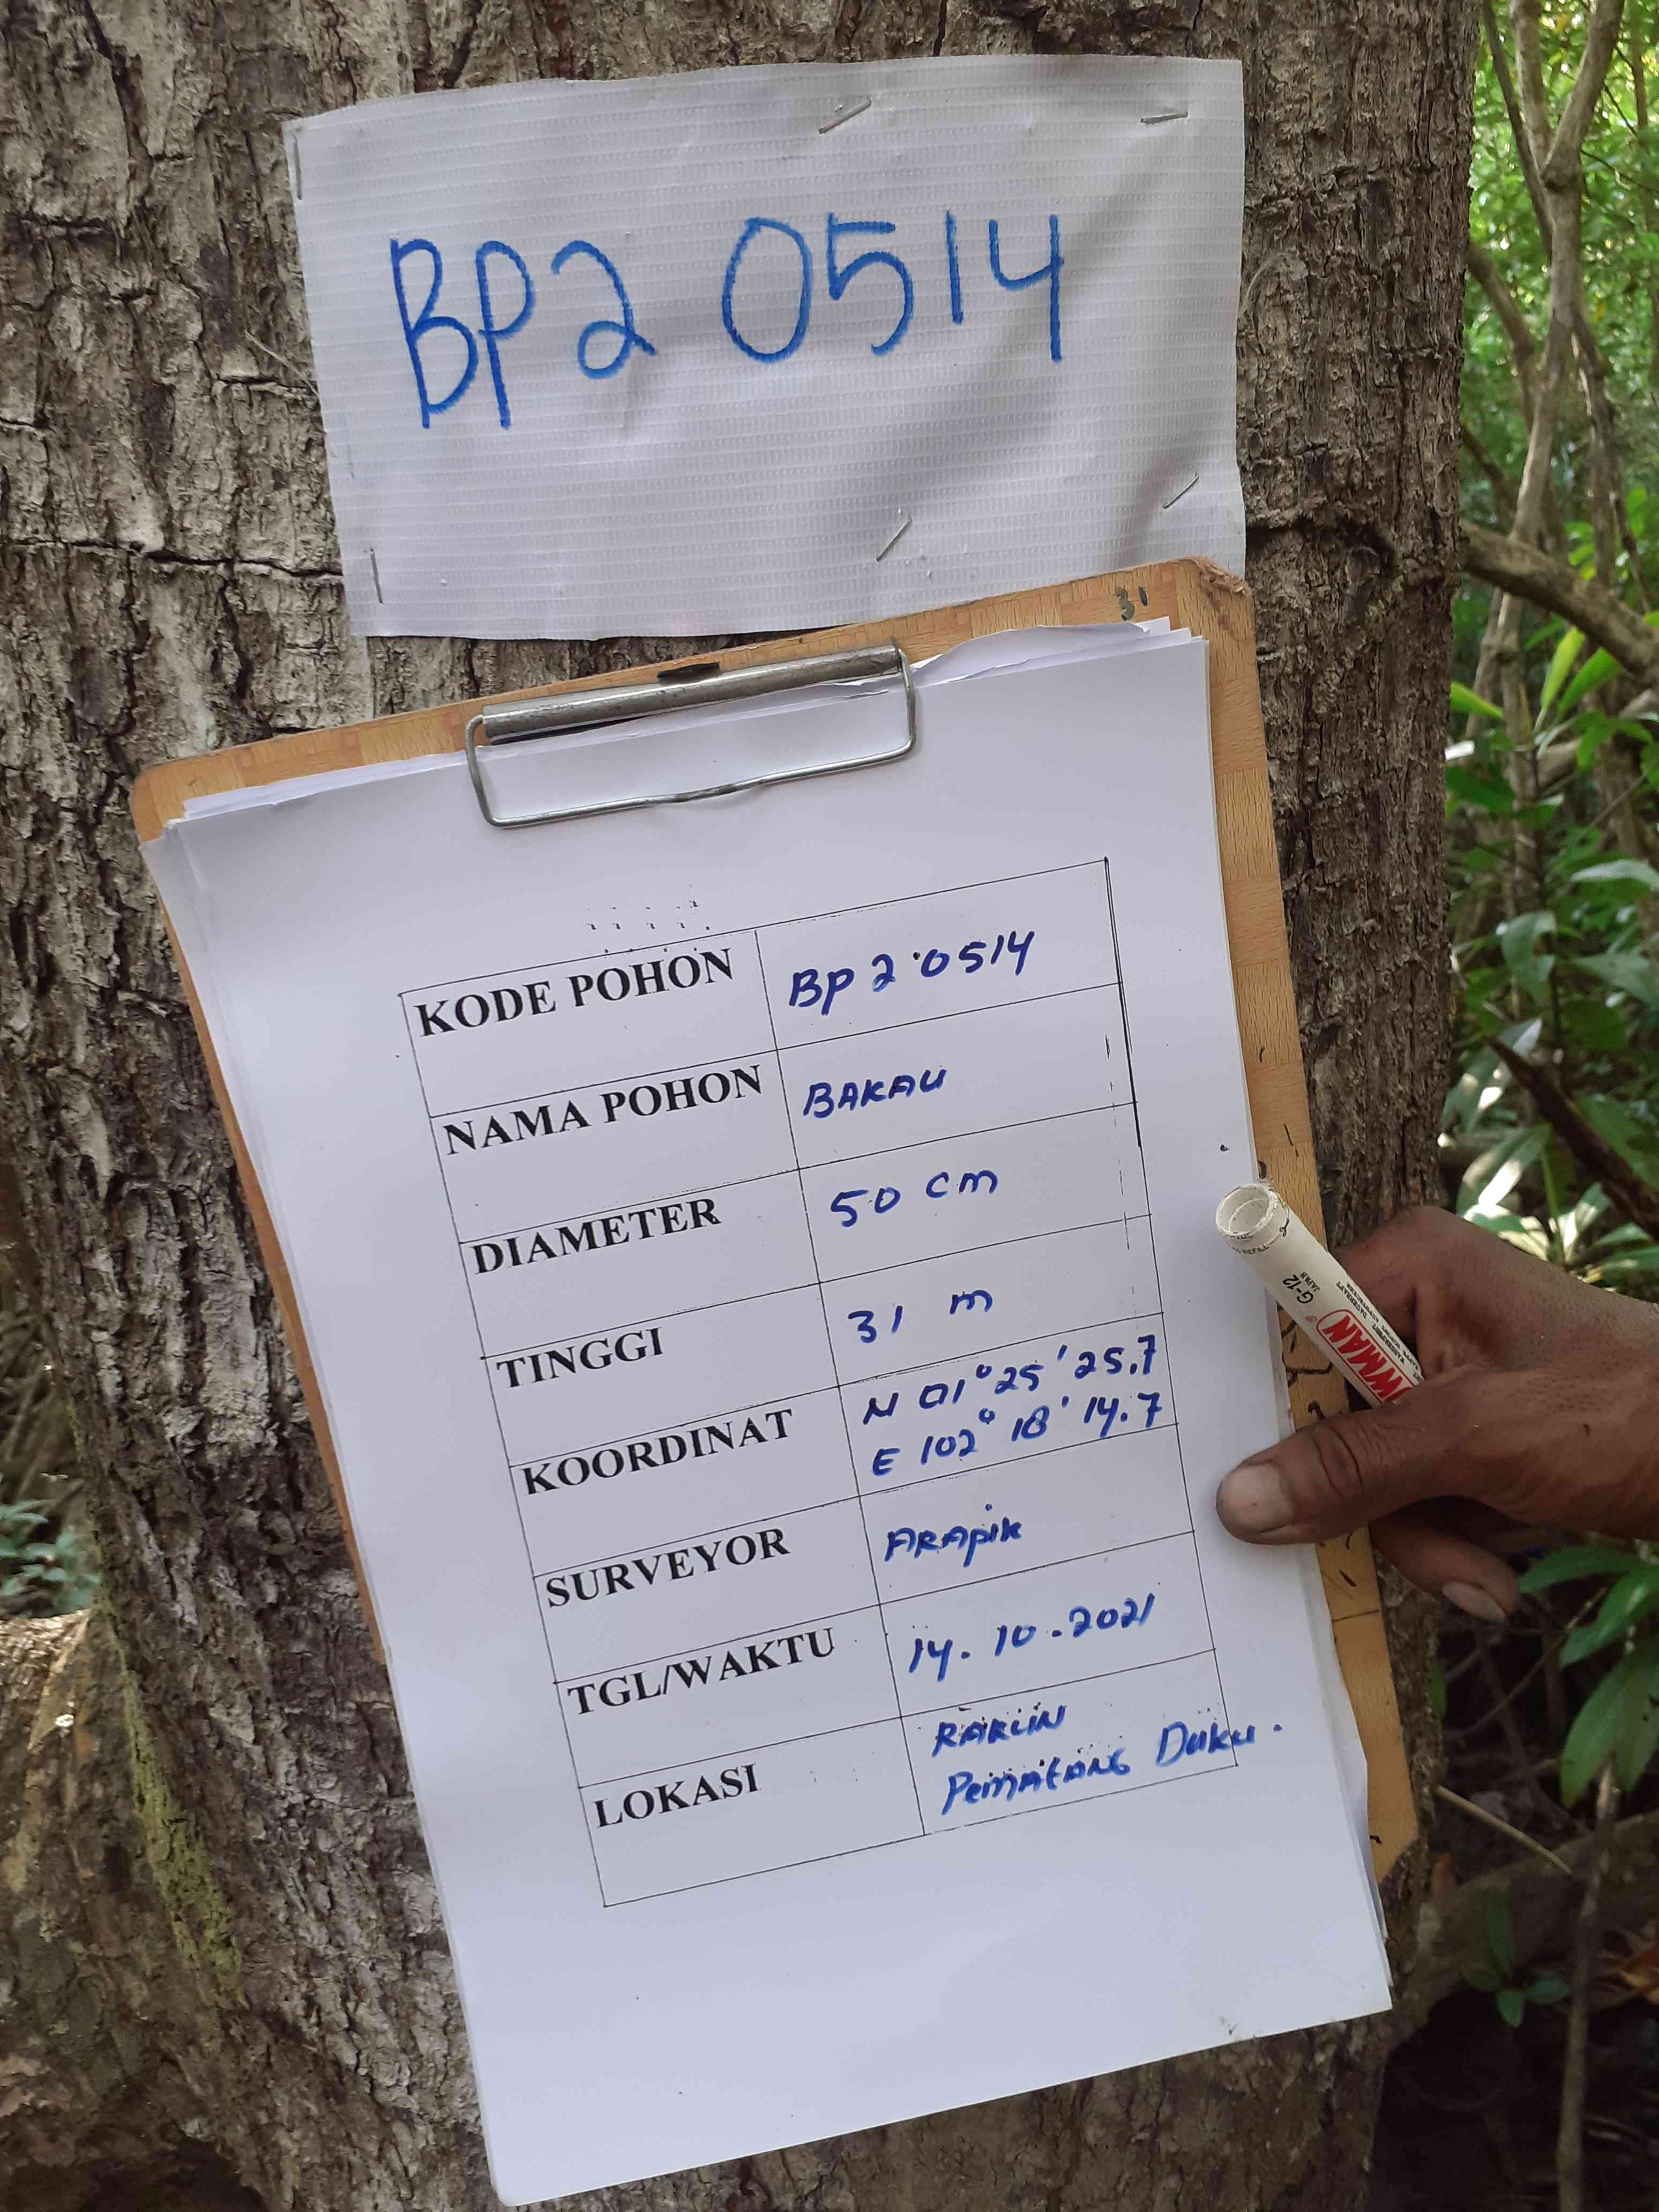 BP2 0514
31
KODE POHON BP2 0514
NAMA POHON BAKAU
DIAMETER 50 cm
TINGGI 31 m
KOORDINAT N 01° 25' 25.7
E 102° 18' 14.7
SURVEYOR ARAPIK
TGL/WAKTU 14.10.2021
LOKASI
Pematang Duku.
G-12
JAPAN
WMAN®